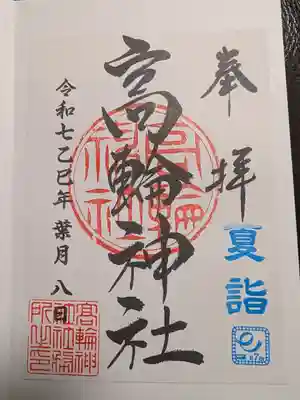 奉拝
夏詣
高輪神社
令和七乙巳年 葉月 八日
高輪神社
高輪神社社務所之印